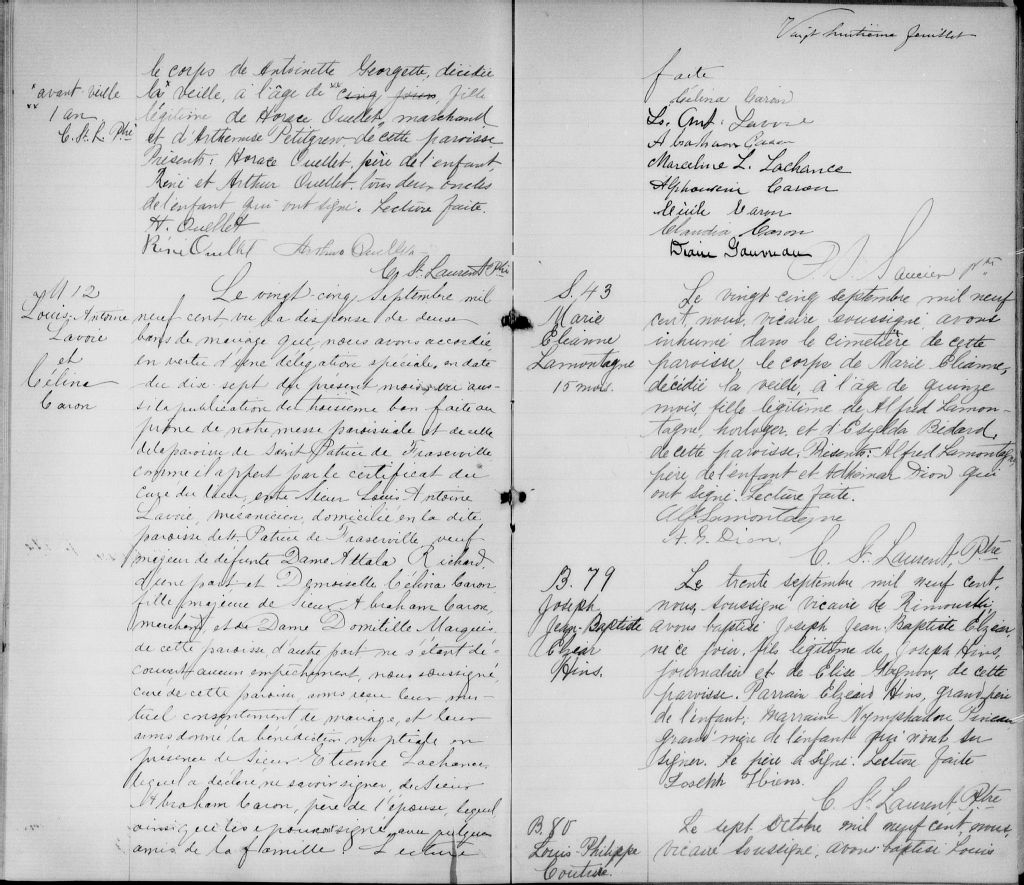 le corps de Antoinette Georgette, décédée
"avant veille
la veille, à l'âge de cinq jours fille
1 an
légitime de Horace Ouellet, marchand
C. St. L. Ptre
et d'Arthemise Petitgrew de cette paroisse
Présents: Horace Ouellet, père de l'enfant,
Réné et Arthur Ouellet tous deux oncles
de l'enfant qui ont signé. Lecture faite.
H. Ouellet
Réné Ouellet Arthur Ouellet
C. St. Laurent Ptre
M 12
Louis-Antoine
Lavoie
et
Célina
Caron
Le vingt cinq Septembre mil
neuf cent, vu la dispense de deux
bans de mariage que nous avons accordée
en vertu d'une délégation spéciale, en date
du dix-sept du présent mois vu aus-
si la publication du troisième ban faite au
prône de notre messe paroissiale et de celle
de la paroisse de Saint Patrice de Fraserville
comme il appert par le certificat du
curé du lieu, entre Sieur Louis Antoine
Lavoie, mécanicien, domicilié en la dite
paroisse de St. Patrice de Fraserville veuf
majeur de défunte Dame Attala Richard
d'une part et Demoiselle Célina Caron
fille majeure de Sieur Abraham Caron,
marchand, et de Dame Domitille Marquis
de cette paroisse d'autre part ne s'étant dé-
couvert aucun empêchement, nous soussigné,
curé de cette paroisse, avons reçu leur mu-
tuel consentement de mariage, et leur
avons donné la bénédiction nuptiale en
présence de Sieur Etienne Lachance,
lequel a déclaré ne savoir signer, de Sieur
Abraham Caron, père de l'épouse, lequel
ainsi que les époux ont signé avec quelques
amis de la famille Lecture
Vingt huitième feuillet
faite
Célina Caron
Ls. Ant. Lavoie
Abraham Caron
Marceline L. Lachance
Alphonsine Caron
Cécile Caron
Claudia Caron
Diane Gauvreau
Saucier Ptre
S. 43
Marie
Elianne
Lamontagne
15 mois.
Le vingt cinq septembre mil neuf
cent, nous, vicaire soussigné, avons
inhumé dans le cimetière de cette
paroisse, le corps de Marie Elianne,
décédée la veille, à l'âge de quinze
mois, fille légitime de Alfred Lamon-
tagne, horloger et d'Esilda Bédard,
de cette paroisse, Présents: Alfred Lamontagne
père de l'enfant et Adhémar Dion qui
ont signé. Lecture faite.
Alf Lamontagne
A. G. Dion.
C. St. Laurent, Ptre
B. 79
Joseph
Jean-Baptiste
Elzéar
Hins.
Le trente septembre mil neuf cent,
nous, soussigné vicaire de Rimouski,
avons baptisé Joseph Jean-Baptiste Elzéar,
né ce jour, fils légitime de Joseph Hins,
journalier et de Elise Gagnon, de cette
paroisse. Parrain Elzéard Hins, grand père
de l'enfant; marraine Nymphadore Pineau
grand'mère de l'enfant qui n'ont su
signer. Le père a signé. Lecture faite
Joseph Hiens.
C. St. Laurent Ptre
B. 80
Louis-Philippe
Couture.
Le sept Octobre mil neuf cent, nous,
vicaire soussigné, avons baptisé Louis